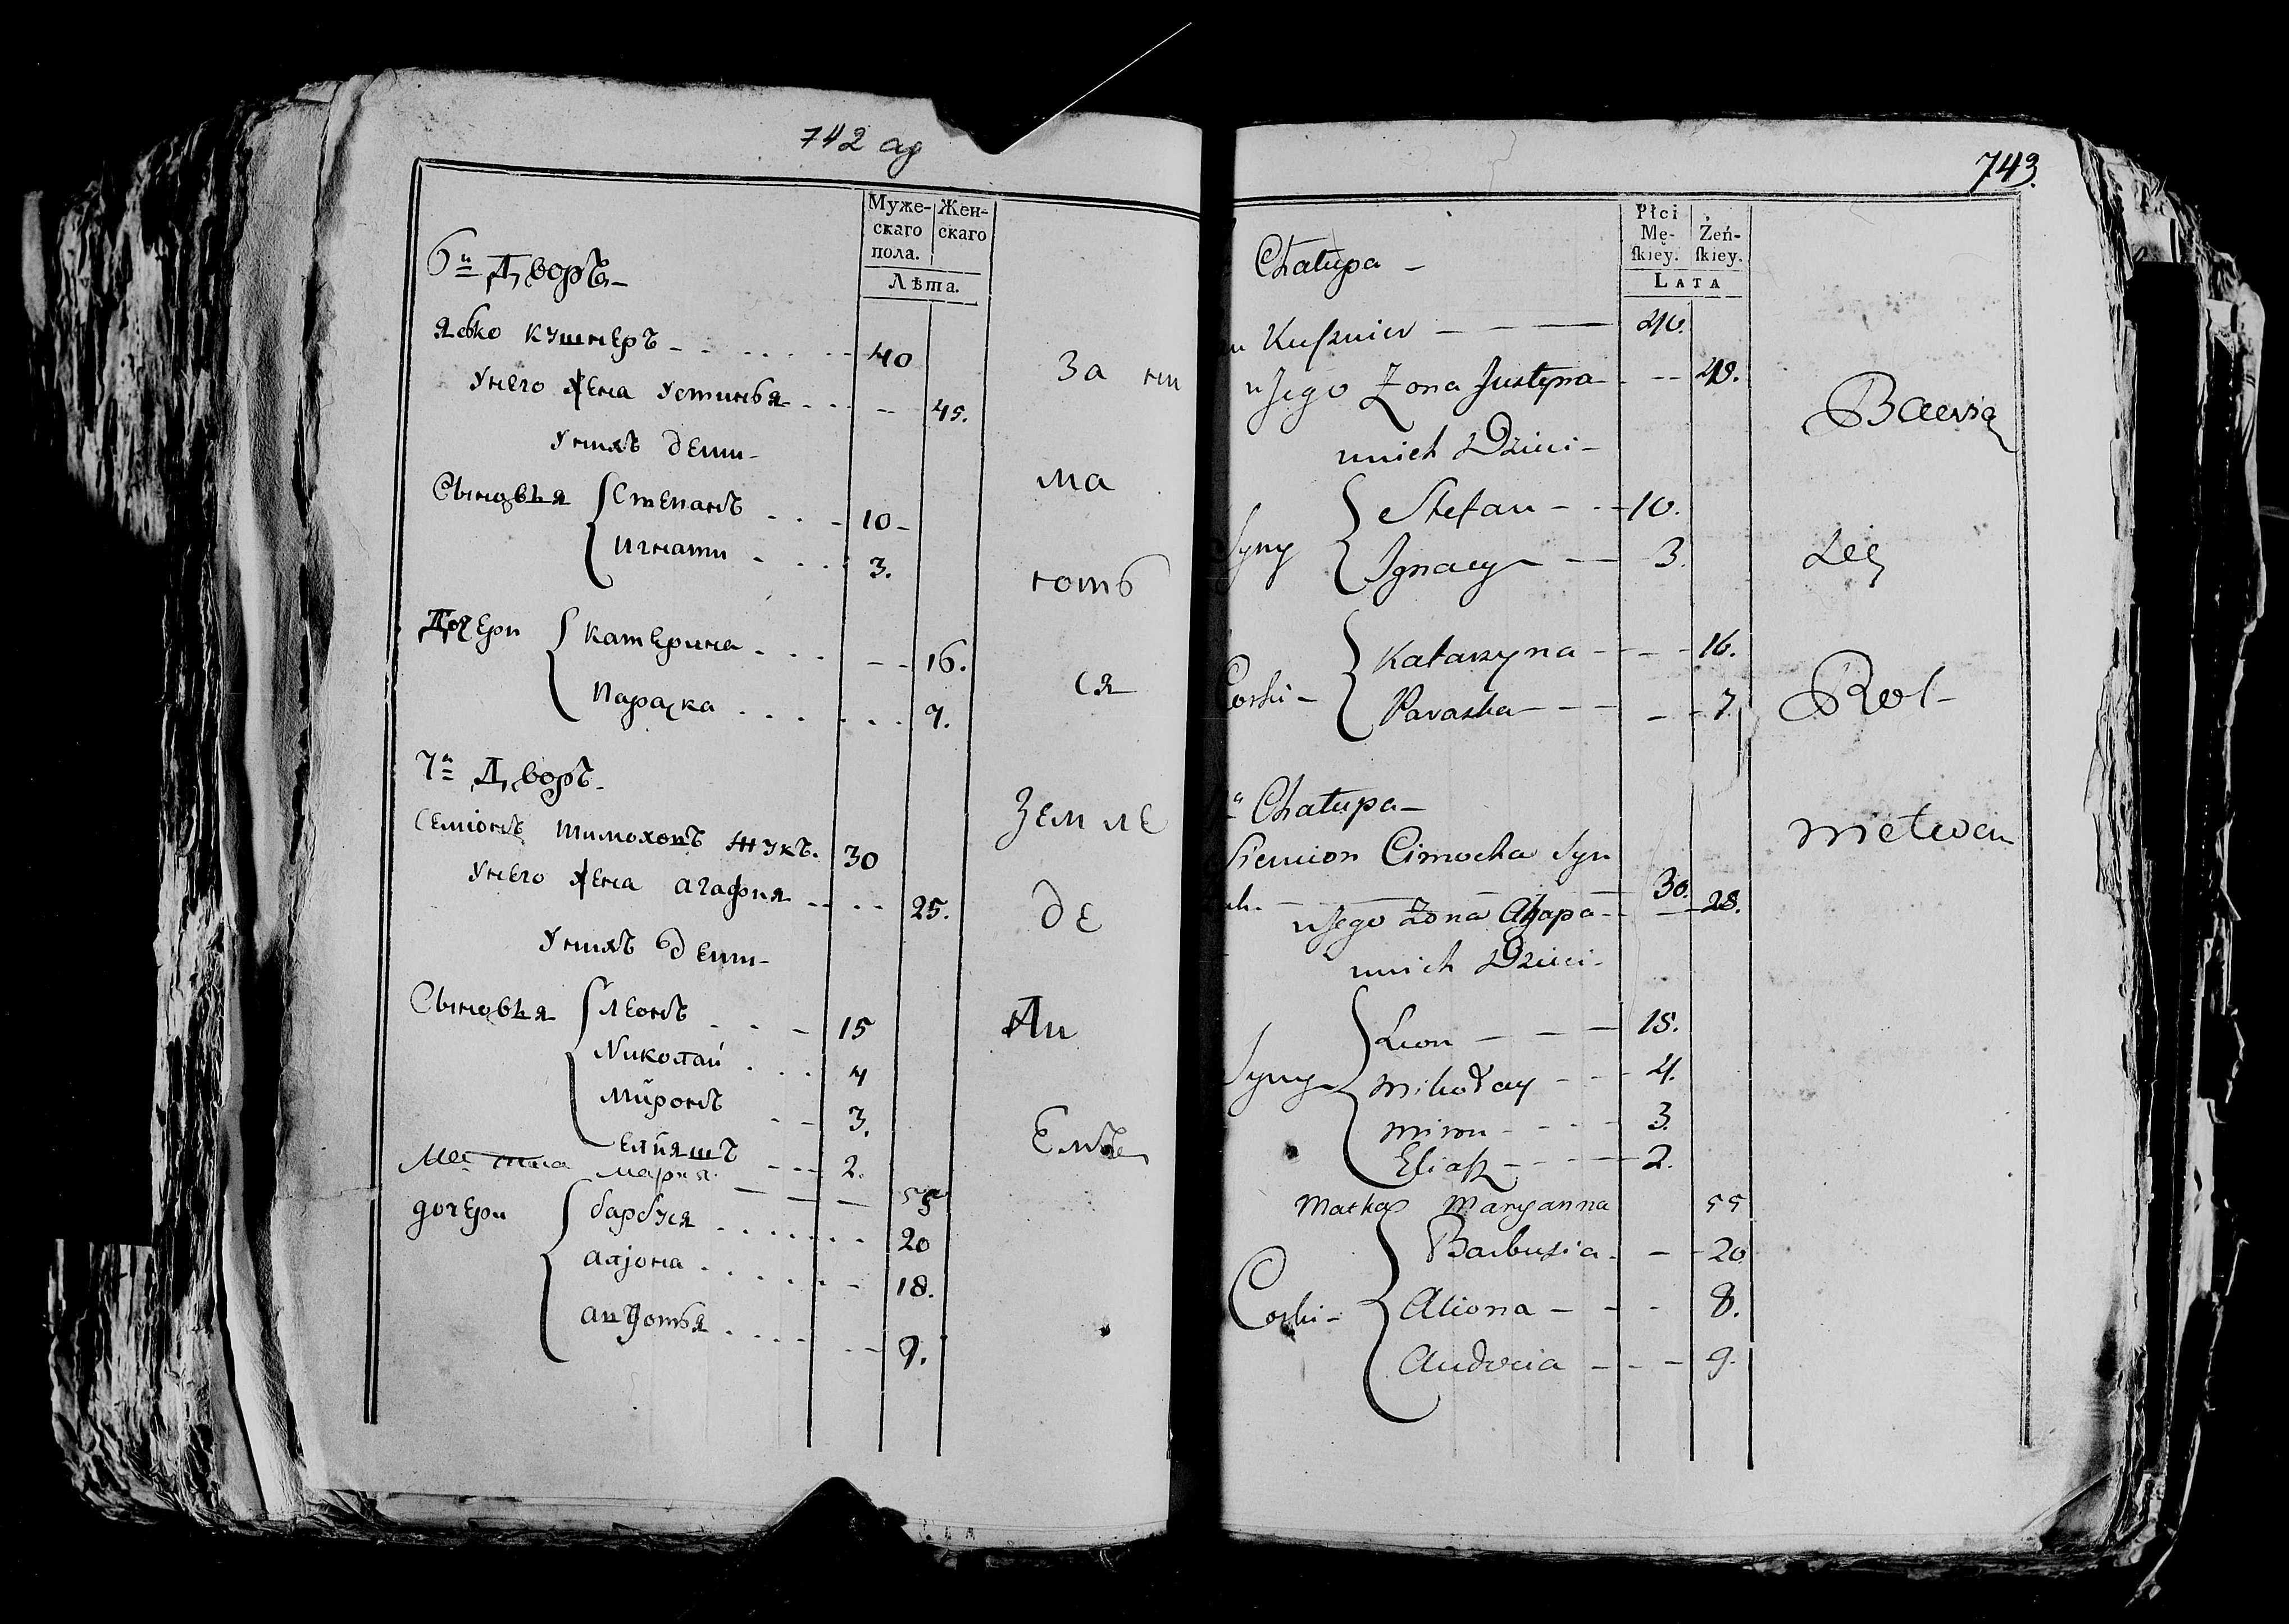 742 об
Муже-
скаго
пола.
Жен-
скаго
Лѣта.
6й Дворъ
Ясько Кушнеръ 40
У него жена Устинья 45.
У нихъ дети
Сыновья Степанъ 10
Игнати 3.
Дочери Катерина 16.
Параска 7.
7й Дворъ
Семіонъ Тимохонъ Жукъ. 30
У него жена Агафия 25.
У нихъ дети
Сыновья Леонъ 15
Николай 4
Миронъ 3.
Елияшъ 2.
Мария 55
дочери барбуся 20
аліона 18.
авдотья 9.
За ни
ма
ютъ
ся
Земле
де
ли
емъ
743.
Płci
Mę-
ſkiey.
Żeń-
ſkiey.
LATA
Chałupa
Kuſznier 40.
u Jego Żona Justyna 48.
u nich Dzieci
Syny Stefan 10.
Ignacy 3.
Corki Katarzyna 16.
Paraska 7
Chałupa
Siemion Cimocha Syn
30.
u Jego Żona Ahapa 28.
u nich Dzieci
Syny Leon 15.
Mikołay 4.
Miron 3.
Eliaſz 2.
Matka Maryanna 55
Corki Barbusia 20
Aliona 8.
Audocia 9.
Bawią
Się
Rol
nictwem